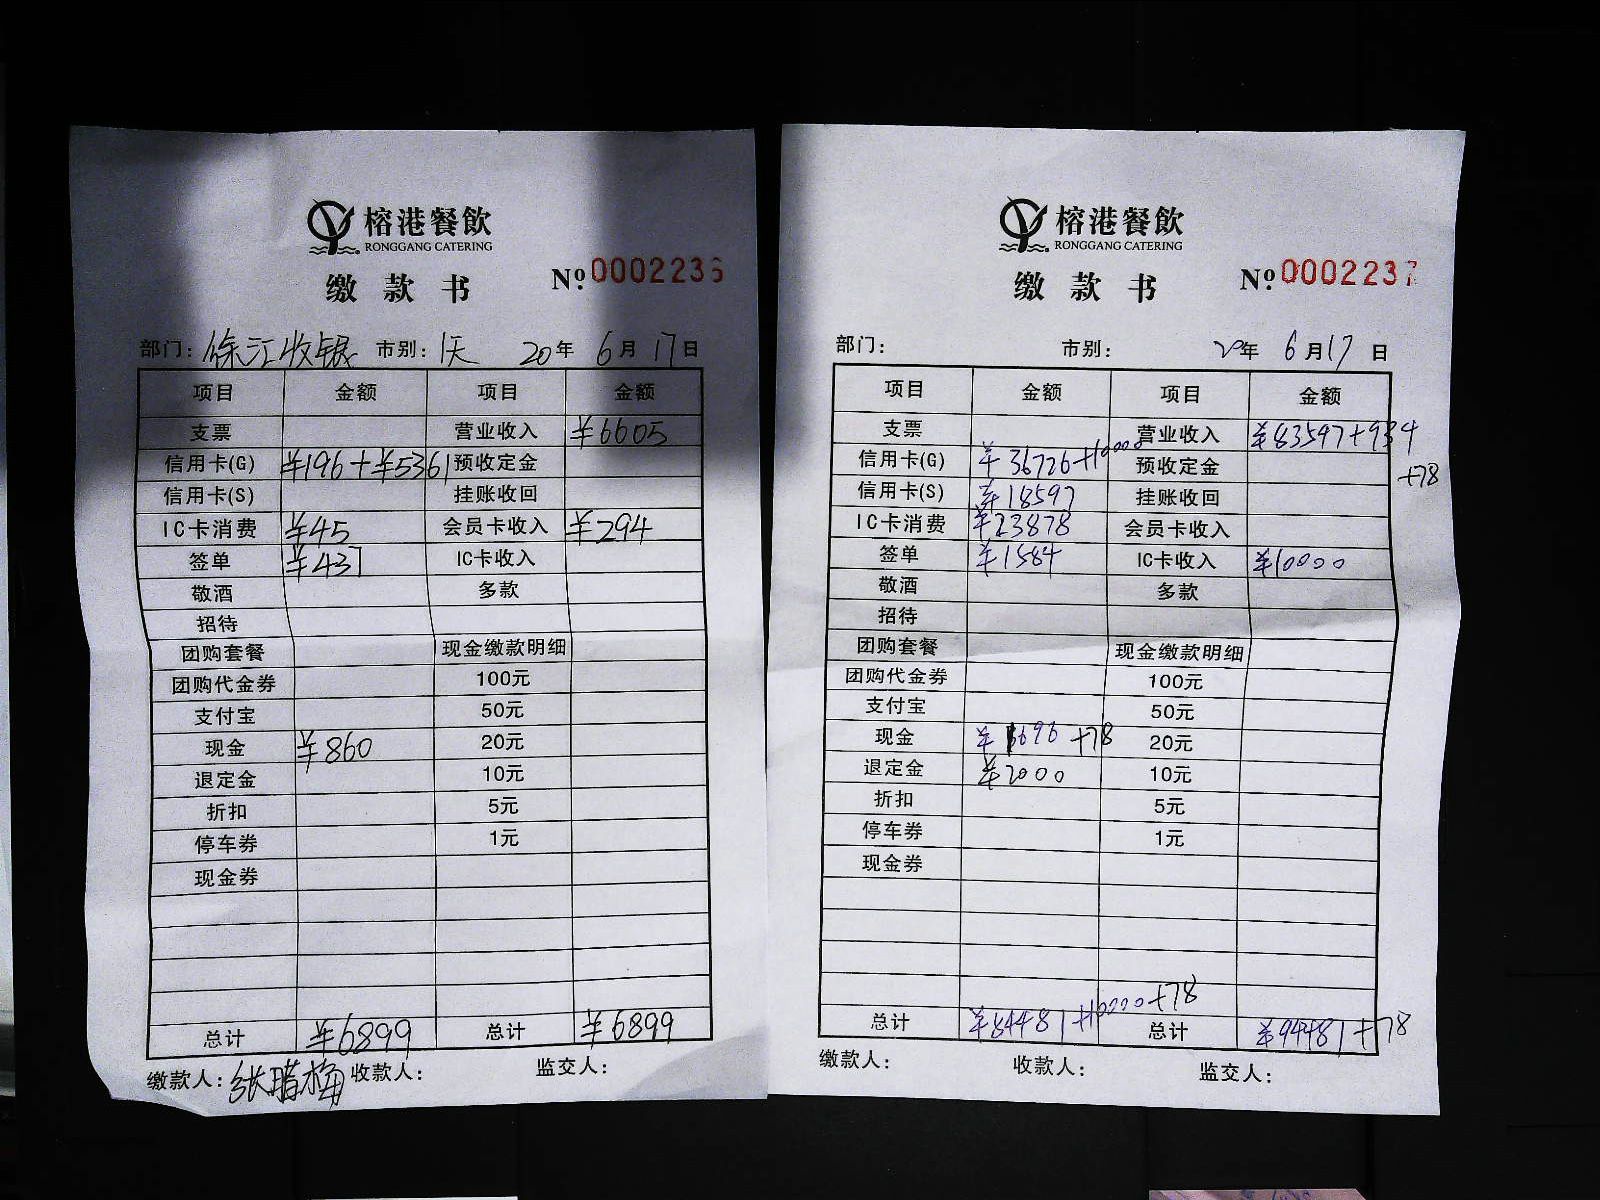 榕港餐飲
RONGGANG CATERING
缴款书 Nº 0002236
部门: 徐汇收银 市别: 1天 20年 6月 17日
项目 金额 项目 金额
支票 营业收入 ¥6605
信用卡(G) ¥196+¥5361 预收定金
信用卡(S) 挂账收回
IC卡消费 ¥45 会员卡收入 ¥294
签单 ¥437 IC卡收入
敬酒 多款
招待
团购套餐 现金缴款明细
团购代金券 100元
支付宝 50元
现金 ¥860 20元
退定金 10元
折扣 5元
停车券 1元
现金券
总计 ¥6899 总计 ¥6899
缴款人: 张腊梅 收款人: 监交人:
榕港餐飲
RONGGANG CATERING
缴款书 Nº 0002237
部门: 市别: 20年 6月17日
项目 金额 项目 金额
支票 营业收入 ¥83597+934
+78
信用卡(G) ¥36726+10000 预收定金
信用卡(S) ¥18597 挂账收回
IC卡消费 ¥23878 会员卡收入
签单 ¥1584 IC卡收入 ¥10000
敬酒 多款
招待
团购套餐 现金缴款明细
团购代金券 100元
支付宝 50元
现金 ¥1696+78 20元
退定金 ¥2000 10元
折扣 5元
停车券 1元
现金券
总计 ¥84481+10000+78 总计 ¥94481+78
缴款人: 收款人: 监交人: